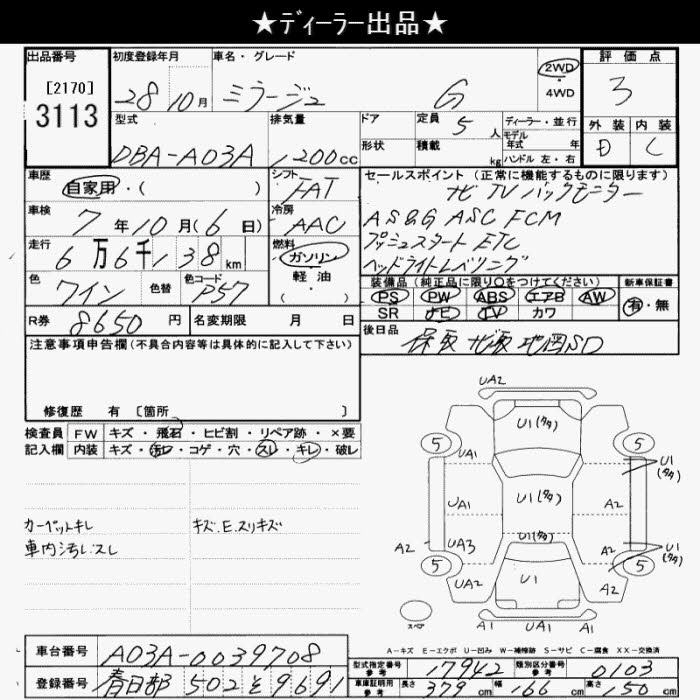 ★ディーラー出品★
出品番号
[2170]
3113
初度登録年月
28 10月
車名・グレード
ミラージュ G
2WD
・
4WD
評価点
3
外装 内装
D C
型式
DBA-A03A
排気量
1200cc
ドア
形状
定員 5 人
積載 kg
ディーラー・並行
モデル
年式 年
ハンドル 左・右
車歴
自家用・( )
シフト
FAT
車検
7年10月(6日)
冷房
AAC
走行
6万6千138km
燃料
ガソリン
軽油
( )
色
ワイン
色替
色コード
P57
R券 8650円
名変期限 月 日
セールスポイント(正常に機能するものに限ります)
ナビ TV バックモニター
AS&G ASC FCM
プッシュスタート ETC
ヘッドライトレベリング
装備品(純正品に限り○をつけてください)
PS PW ABS エアB AW
SR ナビ TV カワ
新車保証書
有・無
後日品
保取 ナビ取 地図SD
注意事項申告欄(不具合内容等は具体的に記入して下さい)
修復歴 有 〔箇所 〕
検査員
記入欄
FW キズ・飛石・ヒビ割・リペア跡・×要
内装 キズ・汚レ・コゲ・穴・スレ・キレ・破レ
カーペットキレ
車内汚レ.スレ
キズ.E.スリキズ
UA2
U1(タタ)
5 5
UA1
U1
(タタ)
UA1
U1(タタ)
A2
A2
UA3
U1(タタ)
A2
U1
(タタ)
5 5
UA2
U1
A2
スペア
A1 U1 U1 A1
A-キズ E-エクボ U-凹み W-補修跡 S-サビ C-腐食 XX-交換済
車台番号 A03A-0039708
登録番号 春日部 502 そ 9691
型式指定番号
参考
17942
類別区分番号
参考
0103
車庫証明用
参考
長さ 379cm 幅 166cm 高さ 50cm